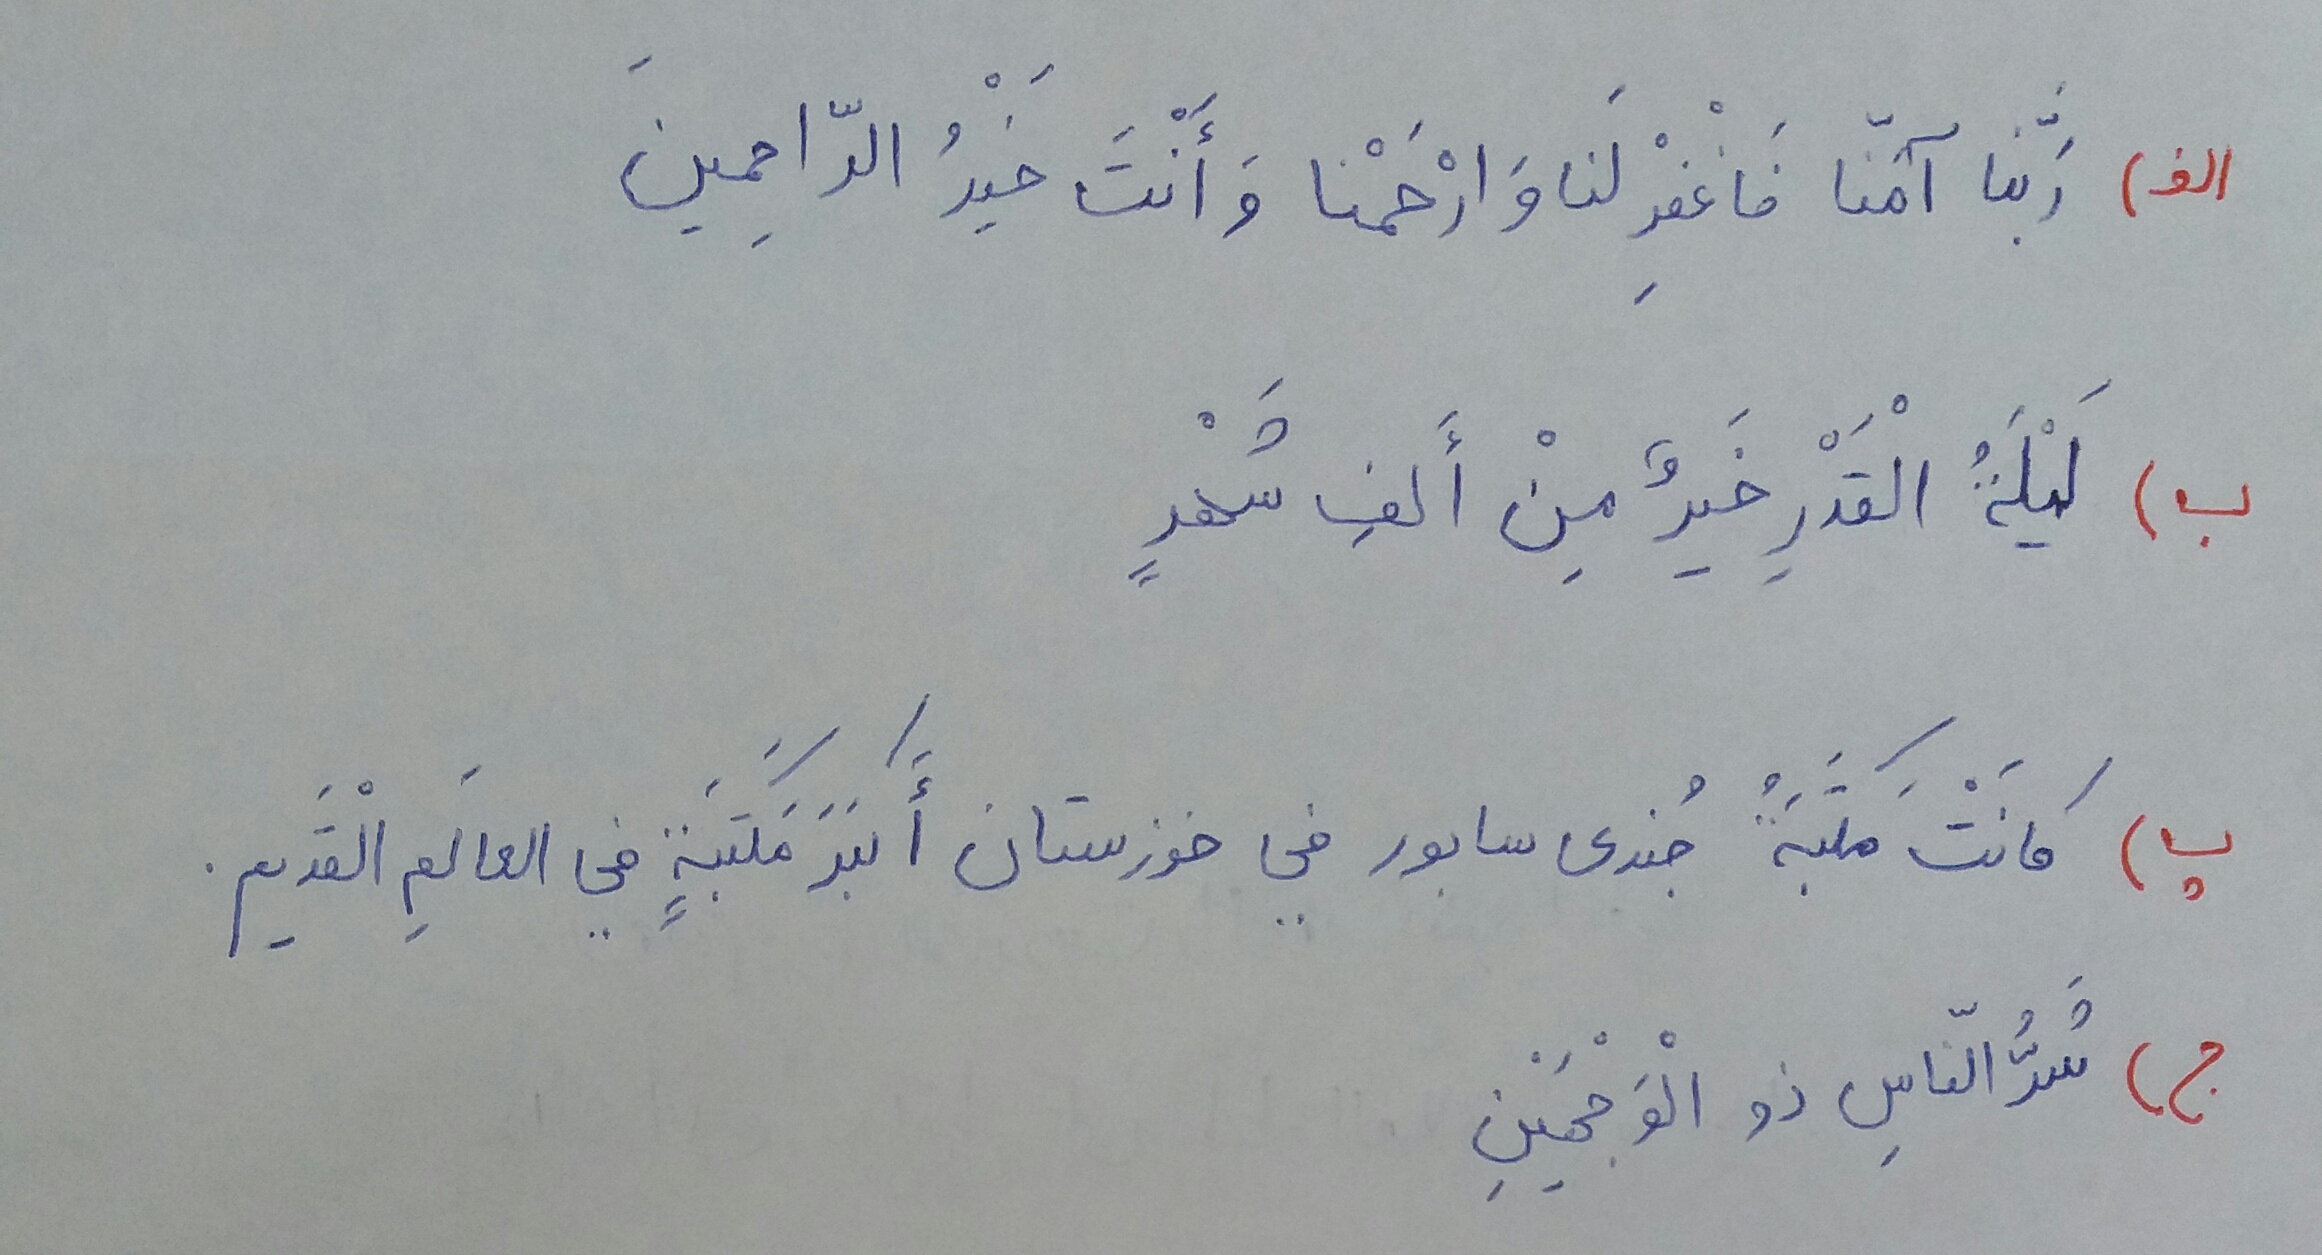 الف) رَبَّنا آمَنّا فَاغْفِرْ لَنا وَ ارْحَمْنا وَ أَنْتَ خَيْرُ الرّاحِمينَ
ب) لَيْلَةُ الْقَدْرِ خَيرٌ مِنْ أَلفِ شَهْرٍ
پ) کانَتْ مَکتَبَةُ جُندی سابور في خوزستان أَکبَرَ مَکتَبَةٍ في العالَمِ الْقَديم.
ج) شَرُّ النّاسِ ذو الْوَجْهَيْنِ